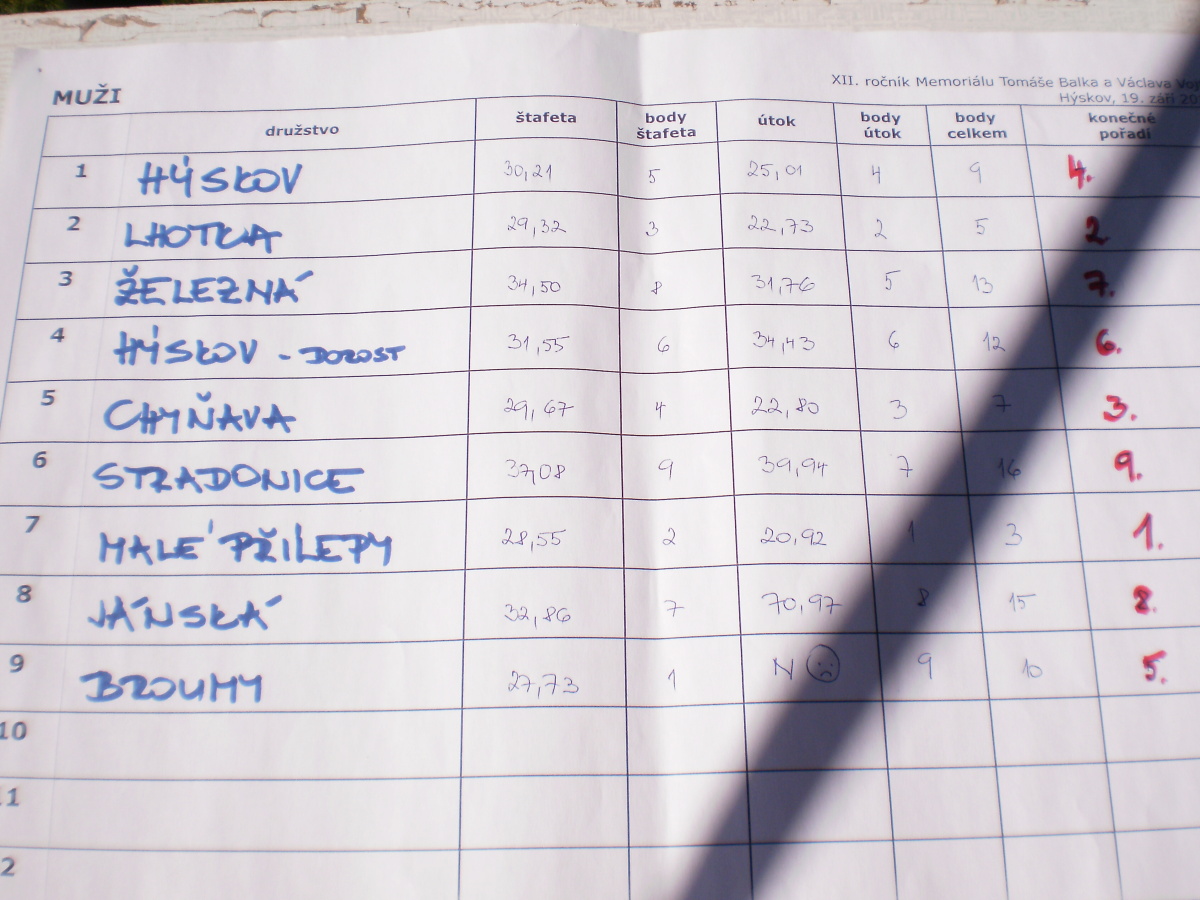 MUŽI
XII. ročník Memoriálu Tomáše Balka a Václava
Hýskov, 19. září
družstvo štafeta body štafeta útok body útok body celkem konečné pořadí
1 HÝSKOV 30,21 5 25,01 4 9 4.
2 LHOTKA 29,32 3 22,73 2 5 2
3 ŽELEZNÁ 34,50 8 31,76 5 13 7.
4 HÝSKOV - DOROST 31,55 6 34,43 6 12 6.
5 CHYŇAVA 29,67 4 22,80 3 7 3.
6 STRADONICE 37,08 9 39,94 7 16 9.
7 MALÉ PŘÍLEPY 28,55 2 20,92 1 3 1.
8 JÁNSKÁ 32,86 7 70,97 8 15 8.
9 BROUMY 27,73 1 N 9 10 5.
10
11
2